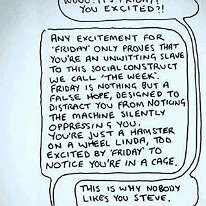 YOU EXCITED?!
ANY EXCITEMENT FOR
'FRIDAY' ONLY PROVES THAT
YOU'RE AN UNWITTING SLAVE
TO THIS SOCIAL CONSTRUCT
WE CALL 'THE WEEK'.
FRIDAY IS NOTHING BUT A
FALSE HOPE, DESIGNED TO
DISTRACT YOU FROM NOTICING
THE MACHINE SILENTLY
OPPRESSING YOU.
YOU'RE JUST A HAMSTER
ON A WHEEL LINDA, TOO
EXCITED BY 'FRIDAY' TO
NOTICE YOU'RE IN A CAGE.
THIS IS WHY NOBODY
LIKES YOU STEVE.